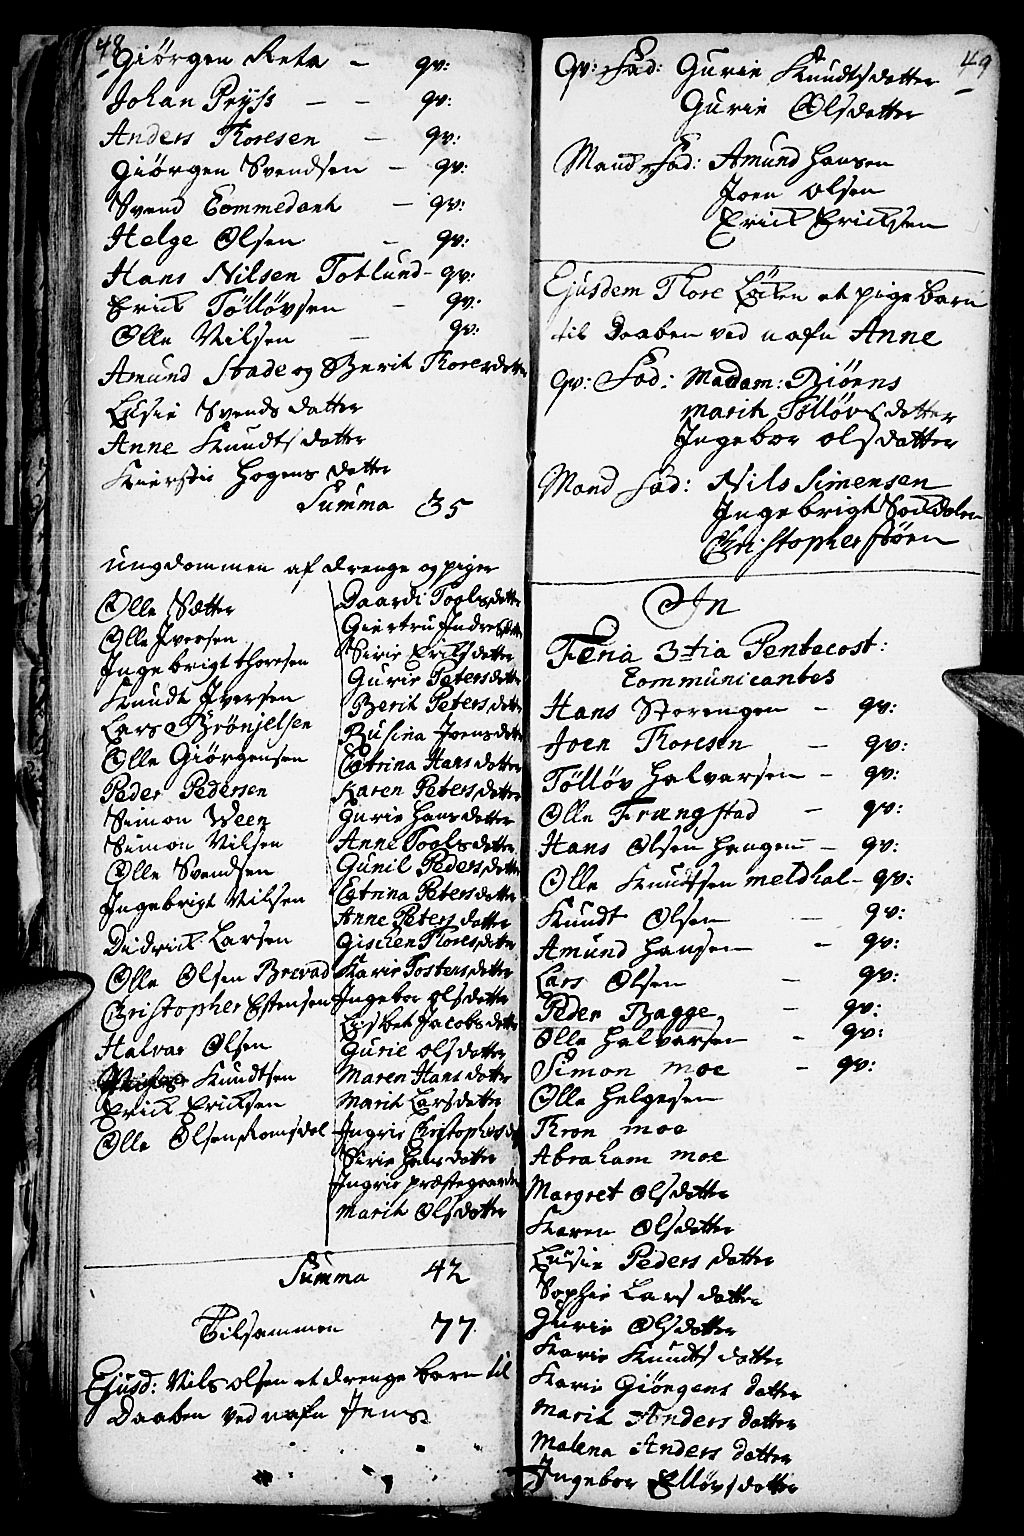 48
Giörgen Reta – qv:
Johan Pryss – – qv:
Anders Thoresen – qv:
Giörgen Svendsen – qv:
Svend Commedant – qv:
Helge Olsen – qv:
Hans Nilsen Totlund – qv:
Erick Töllövsen – qv:
Olle Nilsen – qv:
Amund Stade og Berit Thoresdatter
Lusie Svends datter
Anne Knudts datter
Kiersti Hogens datter
Summa 35
ungdommen af drenge og piger
Olle Sætter
Olle Iversen
Ingebrigt Thoresen
Knudt Iversen
Lars Brönjelsen
Olle Giörgensen
Peder Pedersen
Simon Ween
Simon Nilsen
Olle Svendsen
Ingebrigt Nilsen
Didrick Larsen
Olle Olsen Brevad
Christopher Estensen
Halvar Olsen
Knudtsen
Erick Ericksen
Olle Olsen Romsdal
Daardi Pools datter
Giertru Indresdatter
Sirie Ericksdatter
Gurie Petersdatter
Berit Peters datter
Rusina Joensdatter
Catrina Hansdatter
Karen Peters datter
Gurie Hansdatter
Anne Poolsdatter
Gunil Peders datter
Catrina Petersdatter
Anne Peters datter
Gischen Thoresdatter
Karie Tostensdatter
Ingebor olsdatter
Lisbet Jacobsdatter
Gurie olsdatter
Maren Hansdatter
Marit Larsdatter
Ingrie Christophersd
Sirie Hansdatter
Ingrie præstegaarden
Marit Olsdatter
Summa 42
Tilsammen 77
Ejusd: Nils olsen et drenge barn til
Daaben ved nafn Jens
49
Qv: Fad: Gurie Knudtsdatter
Gurie Olsdatter
Mand Fad: Amund Hansen
Joen Olsen
Erick Ericksen
Ejusdem Thore Löcken et pige barn
til Daaben ved nafn Anne
qv: Fad: Madam: Biöens
Marit Töllövs datter
Ingebor olsdatter
Mand Fad: Nils Simensen
Ingebrigt Soddolen
Christopher stöen
In
Feria 3tia Pentecost:
Communicantes
Hans Storengen – qv:
Joen Thoresen – qv:
Töllöv Halvorsen – qv:
Olle Frengstad – qv:
Hans Olsen Haugen – qv:
Olle Knudtsen meldhal – qv:
Knudt Olsen – qv:
Amund Hansen – qv:
Lars Olsen – qv:
Peder Bagge – qv:
Olle Halvorsen – qv:
Simon moe – qv:
Olle Helgesen
Tron moe
Abraham moe
Margret Olsdatter
Karen Olsdatter
Lusie Peders datter
Sophie Lars datter
Gurie Olsdatter
Karie Knudts datter
Karie Giörgens datter
Marit Anders datter
Malena Anders datter
Ingebor Ellövsdatter